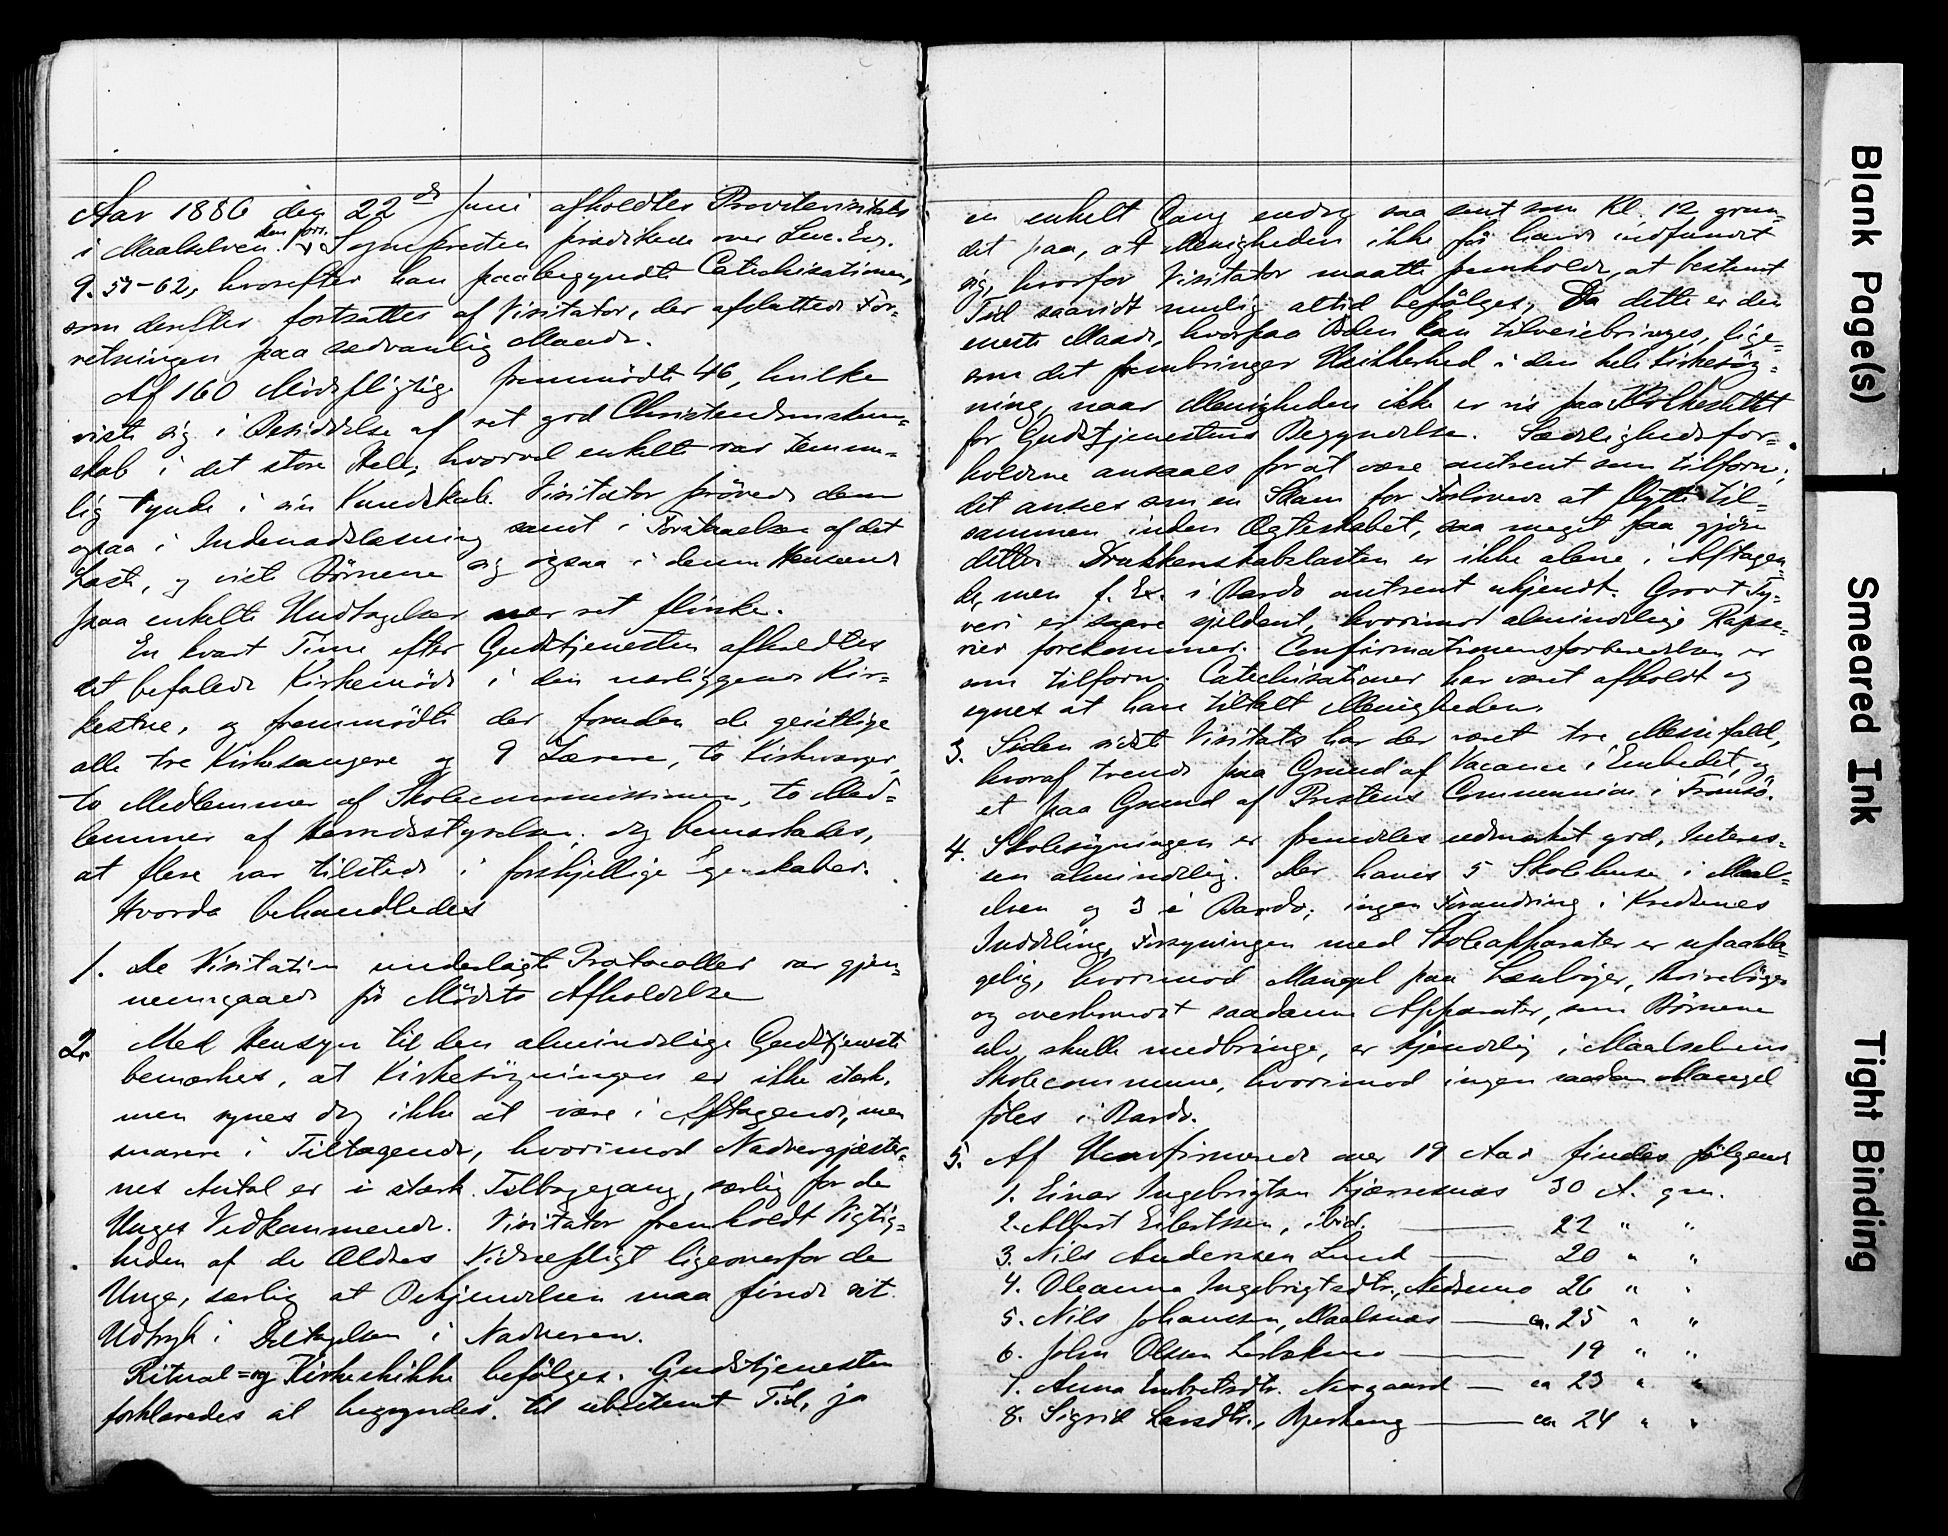 Aar 1886 den 22de Juni afholdtes Provstevisitats
i Maalselven. den förr. Sognepresten prædikede over Luc. Ev.
9. 57-62, hvorefter han paabegyndte Catechisationen,
som derefter fortsattes af Visitator, der afsluttede For-
retningen paa sædvanlig Maade.
Af 160 Mödepligtige fremmödte 46, hvilke
viste sig i Besiddelse af ret god Christendomskun-
skab i det store Hele, hvorvel enkelte var temme-
lig tynde i sin Kundskab. Visitator prövede dem
ogsaa i Indenadslæsning samt i Forstaaelsen af det
Læste, og viste Börnene sig ogsaa i denne Henseende
paa enkelte Undtagelser nær ret flinke.
En kvart Time efter Gudstjenesten afholdtes
det befalede Kirkemöde i den nærliggende Kir-
kestue, og fremmödte der foruden de geistlige
alle tre Kirkesangere og 9 Lærere, to Kirkeverger,
to Medlemmer af Skolecommissionen, to Med-
lemmer af Herredsstyrelsen; dog bemærkedes,
at flere var tilstede i forskjellige Egenskaber.
Hvorda behandledes
1. De Visitatien underlagte Protocoller var gjen-
nemgaaede för Mödets Afholdelse
2. Med Hensyn til den almindelige Gudstjeneste
bemærkes, at Kirkesögningen er ikke stærk,
men synes dog ikke at være i Aftagende, men
snarere i Tiltagende, hvorimod Nadvergjæster-
nes Antal er i stærk Tilbagegang, særlig for de
Unges Vedkommende. Visitator fremholdt Vigtig-
heden af de Ældres Vidnepligt ligeoverfor de
Unge, særlig at Bekjendelsen maa finde sit
Udtryk i Deltagelsen i Nadveren.
Ritual= og Kirkeskikke befölges. Gudstjenesten
forklaredes at begyndes til ubestemt Tid, ja
en enkelt Gang endog saa sent som Kl. 12, grun-
det paa, at Menigheden ikke för havde indfundet
sig, hvorfor Visitator maatte fremholde, at bestemt
Tid saavidt mulig altid befölges, Da dette er den
eneste Maade, hvorpaa Orden kan tilveiebringes, lige-
som det frembringer Usikkerhed i den hele Kirkesög-
ning, naar Menigheden ikke er vis paa Klokkeslettet
for Gudstjenestens Begyndelse. Sædelighedsfor-
holdene ansaaes for at være omtrent som tilforn;
det ansees som en Skam for Forlovede at flytte til-
sammen inden Ægteskabet, saa meget faa gjöre
dette. Drukkenskabslasten er ikke alene i Aftagen-
de, men f. Ex. i Bardo omtrent ukjendt. Grovt Ty-
veri er saare sjeldent, hvorimod almindelige Rapse-
rier forekommer. Confirmationsforberedelsen er
som tilforn. Catechisationer har været afholdt og
synes at have tiltalt Menigheden.
3. Siden sidste Visitats har der været tre Messefald,
hvoraf trende paa Grund af Vacance i Embedet, og
et paa Grund af Prestens Communion i Tromsö.
4. Skolesögningen er fremdeles udmærket god, Interes-
sen almindelig. Der haves 5 Skolehuse i Maal-
elven og 3 i Bardo; ingen Forandring i Kredsenes
Inddeling, Forsyningen med Skoleapparater er upaakla-
gelig, hvorimod Mangel paa Lærebøger, Skrivebøger
og overhovedet saadanne Apparater, som Börnene
selv skulle medbringe, er kjendelig i Maalselvens
Skolecommune, hvorimod ingen saadan Mangel
föles i Bardo.
5. Af Uconfirmerede over 19 Aar findes følgende
1. Einar Ingebrigtsen Kjærresnæs 30 A. gm.
2. Albert Eilertsen, ibid. 22 " "
3. Nils Andersen Lund 20 " "
4. Oleanna Ingebrigtsdtr., Nedremo 26 " "
5. Nils Johansen, Maalsnæs ca. 25 " "
6. John Olsen 19 " "
7. Anna Embretsdtr. Nergaard ca 23 " "
8. Sigrid Larsdtr., Bjerkeng ca 24 " "
Blank Page(s)
Smeared Ink
Tight Binding